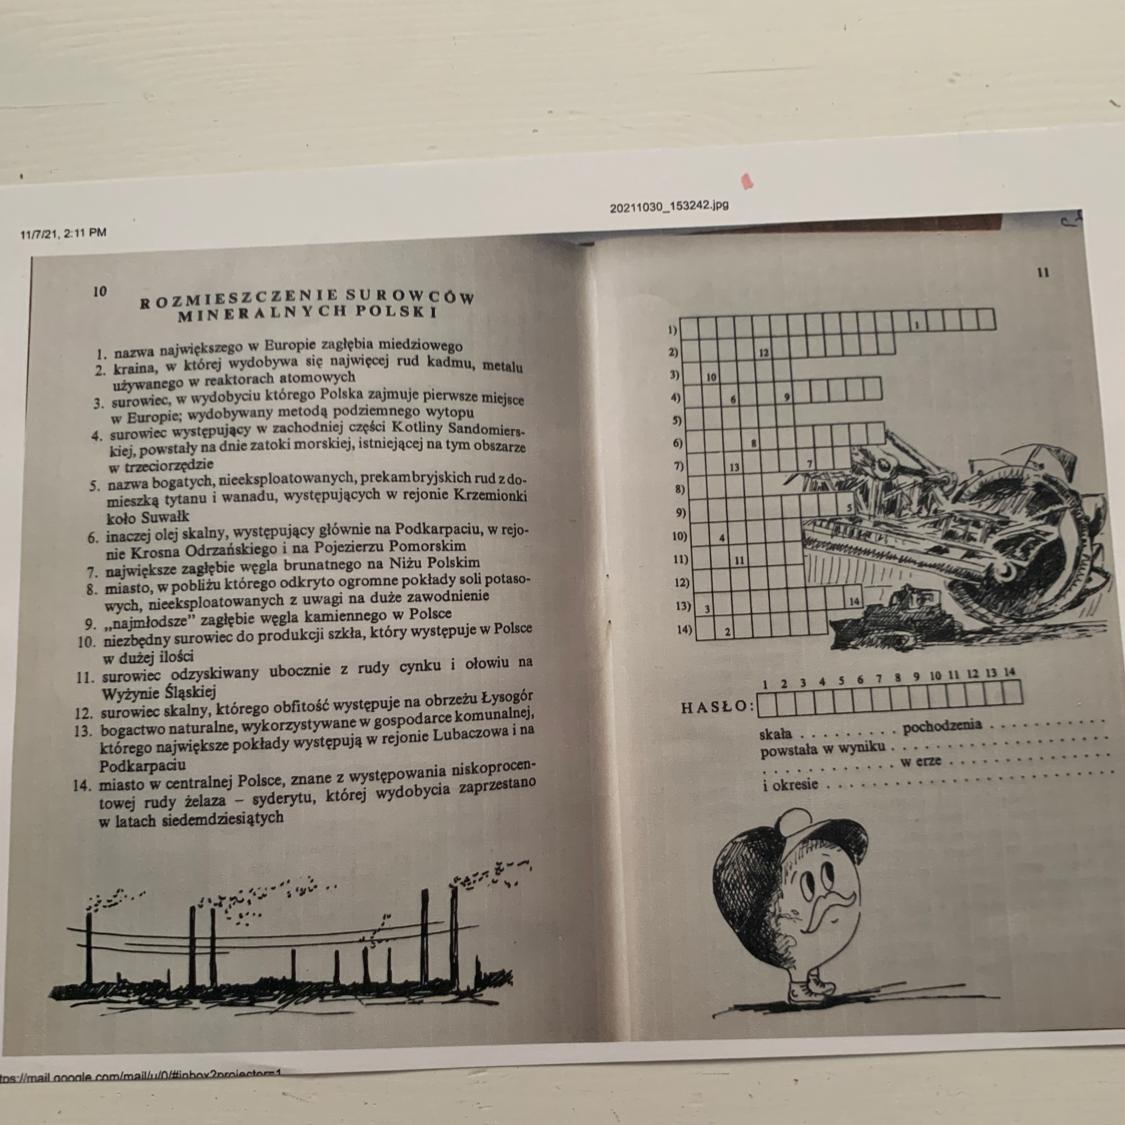 20211030_153242.jpg
11/7/21, 2:11 PM
10
ROZMIESZCZENIE SUROWCÓW
MINERALNYCH POLSKI
1. nazwa największego w Europie zagłębia miedziowego
2. kraina, w której wydobywa się najwięcej rud kadmu, metalu
używanego w reaktorach atomowych
3. surowiec, w wydobyciu którego Polska zajmuje pierwsze miejsce
w Europie; wydobywany metodą podziemnego wytopu
4. surowiec występujący w zachodniej części Kotliny Sandomiers-
kiej, powstały na dnie zatoki morskiej, istniejącej na tym obszarze
w trzeciorzędzie
5. nazwa bogatych, nieeksploatowanych, prekambryjskich rud z do-
mieszką tytanu i wanadu, występujących w rejonie Krzemionki
koło Suwałk
6. inaczej olej skalny, występujący głównie na Podkarpaciu, w rejo-
nie Krosna Odrzańskiego i na Pojezierzu Pomorskim
7. największe zagłębie węgla brunatnego na Niżu Polskim
8. miasto, w pobliżu którego odkryto ogromne pokłady soli potaso-
wych, nieeksploatowanych z uwagi na duże zawodnienie
9. „najmłodsze” zagłębie węgla kamiennego w Polsce
10. niezbędny surowiec do produkcji szkła, który występuje w Polsce
w dużej ilości
11. surowiec odzyskiwany ubocznie z rudy cynku i ołowiu na
Wyżynie Śląskiej
12. surowiec skalny, którego obfitość występuje na obrzeżu Łysogór
13. bogactwo naturalne, wykorzystywane w gospodarce komunalnej,
którego największe pokłady występują w rejonie Lubaczowa i na
Podkarpaciu
14. miasto w centralnej Polsce, znane z występowania niskoprocen-
towej rudy żelaza – syderytu, której wydobycia zaprzestano
w latach siedemdziesiątych
11
1) 1
2) 12
3) 10
4) 6 9
5)
6) 8
7) 13 7
8)
9) 5
10) 4
11) 11
12)
13) 3 14
14) 2
1 2 3 4 5 6 7 8 9 10 11 12 13 14
HASŁO:
skała . . . . . . . . . pochodzenia . . . . . . . . . .
powstała w wyniku . . . . . . . . . . . . . . . . . .
. . . . . . . . . . . . w erze . . . . . . . . . . . . . .
i okresie . . . . . . . . . . . . . . . . . . . . . . . .
tps://mail.google.com/mail/u/0/#inbox?projector=1